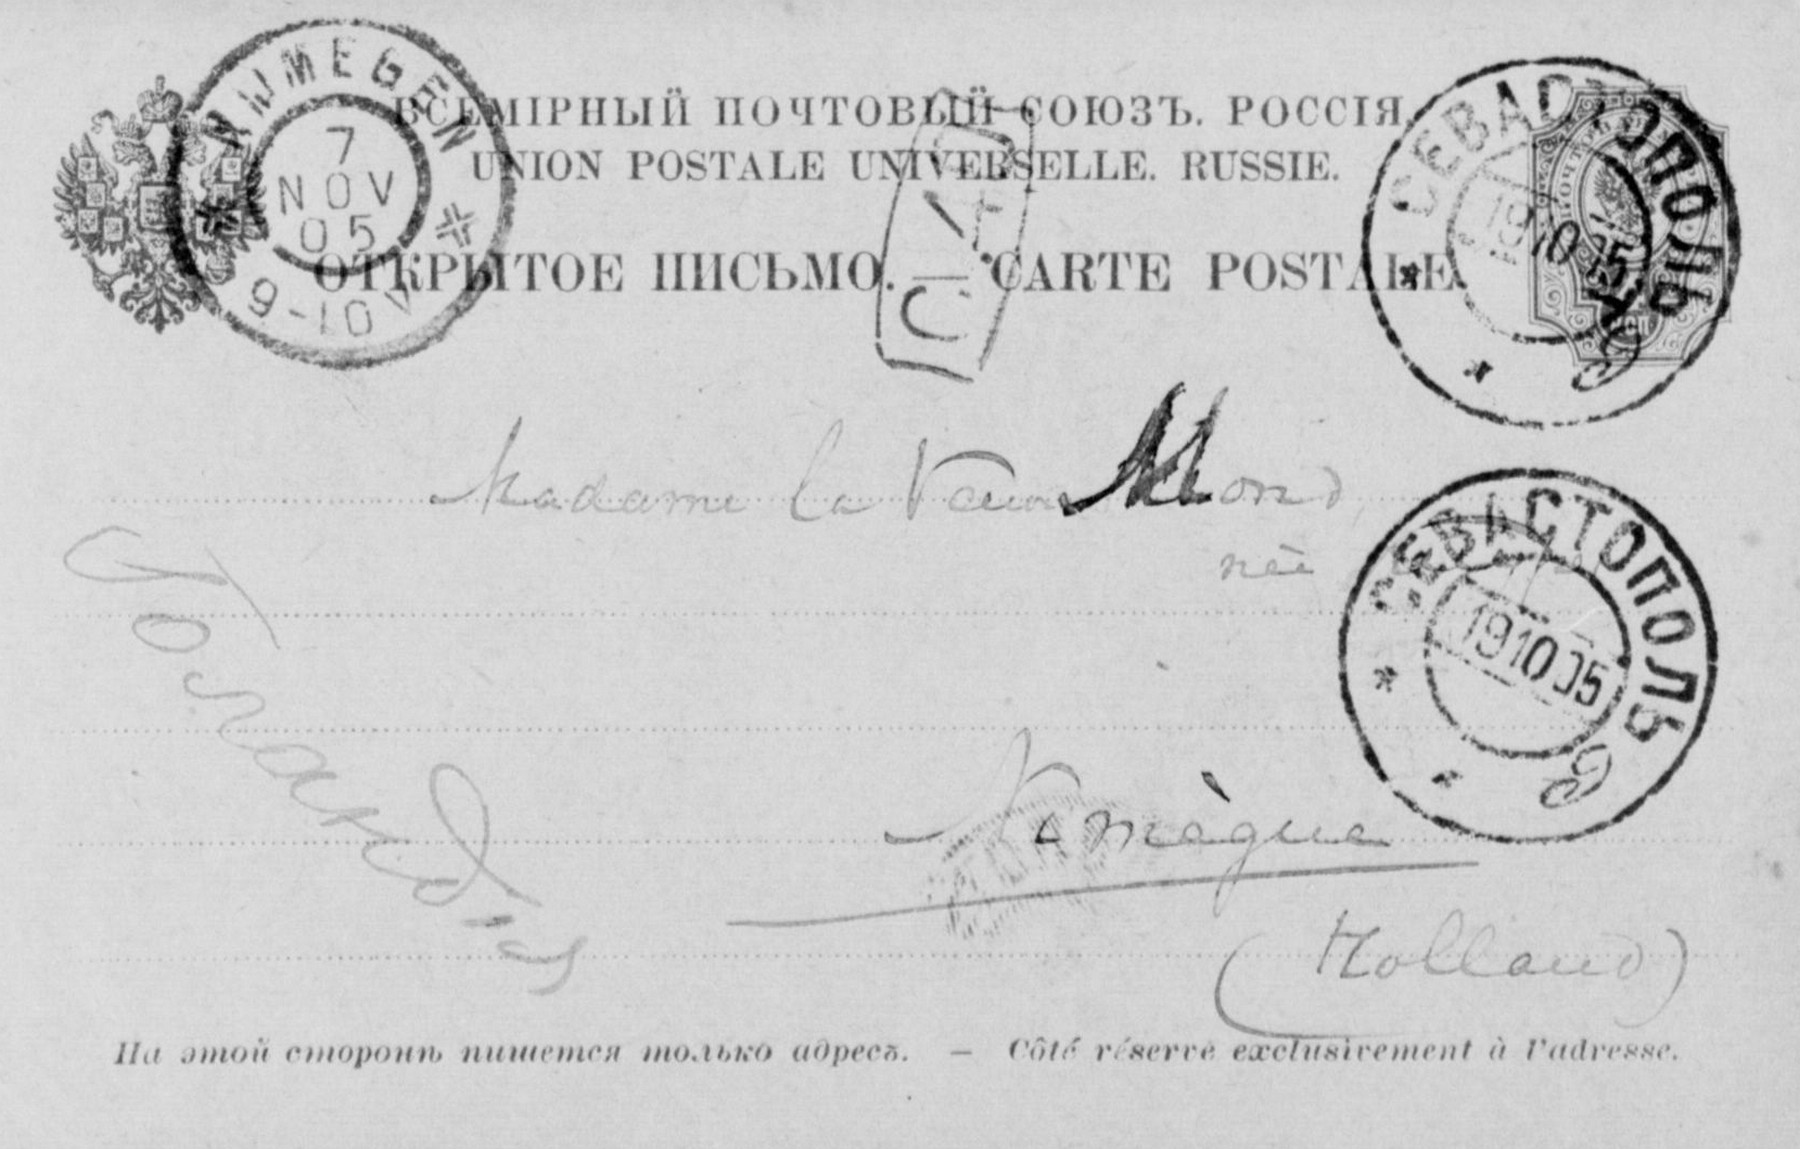 ВСЕМІРНЫЙ ПОЧТОВЫЙ СОЮЗЪ. РОССІЯ.
UNION POSTALE UNIVERSELLE. RUSSIE.
ОТКРЫТОЕ ПИСЬМО. — CARTE POSTALE.
NIJMEGEN
7
NOV
05
9-10V
СЕВАСТОПОЛЬ
19 10 05
Madame la Veuve Mond,
née
СЕВАСТОПОЛЬ
19 10 05
Голандія
Nimègue
(Holland)
На этой сторонѣ пишется только адресъ. — Côté réservé exclusivement à l'adresse.